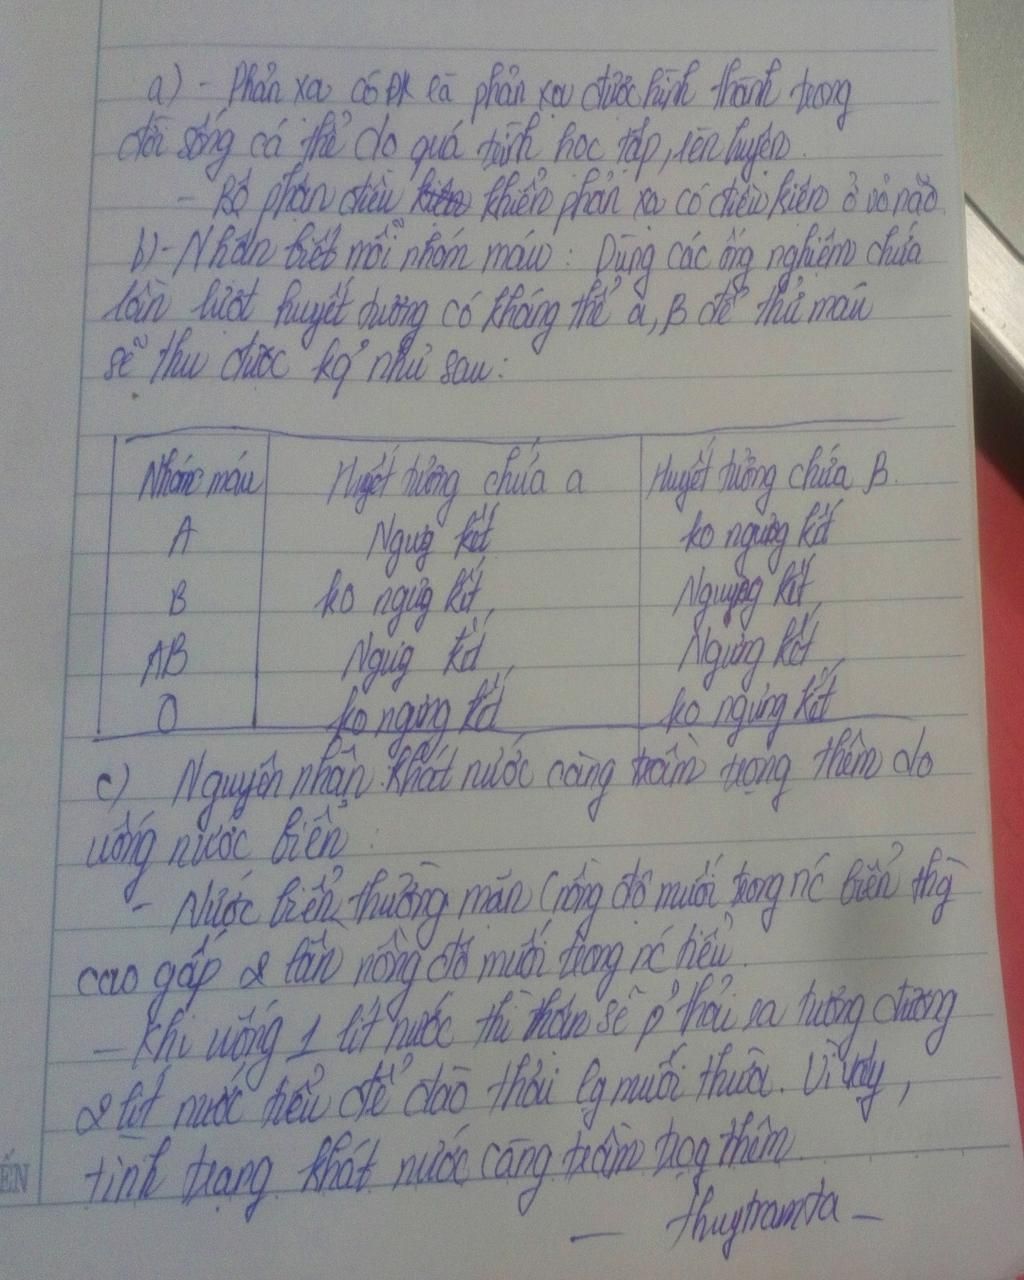 a) - Phản xạ có ĐK là phản xạ được hình thành trong
đời sống cá thể do quá trình học tập, rèn luyện.
- Bộ phận điều khiển phản xạ có điều kiện ở vỏ não
b) - Nhận biết mỗi nhóm máu: Dùng các ống nghiệm chứa
lần lượt huyết tương có kháng thể α, β để thử máu
sẽ thu được kq như sau:
Nhóm máu Huyết tương chứa α Huyết tương chứa β.
A Ngưng kết ko ngưng kết
B ko ngưng kết Ngưng kết
AB Ngưng kết Ngưng kết
O ko ngưng kết ko ngưng kết
c) Nguyên nhân khát nước càng trầm trọng thêm do
uống nước biển:
- Nước biển thường mặn (nồng độ muối trong nc biển thg
cao gấp 2 lần nồng độ muối trong nc tiểu.
- Khi uống 1 lít nước thì thận sẽ p thải ra tương đương
2 lít nước tiểu để đào thải lg muối thừa. Vì vậy,
tình trạng khát nước càng trầm trọg thêm.
- thuytramta -
ẾN